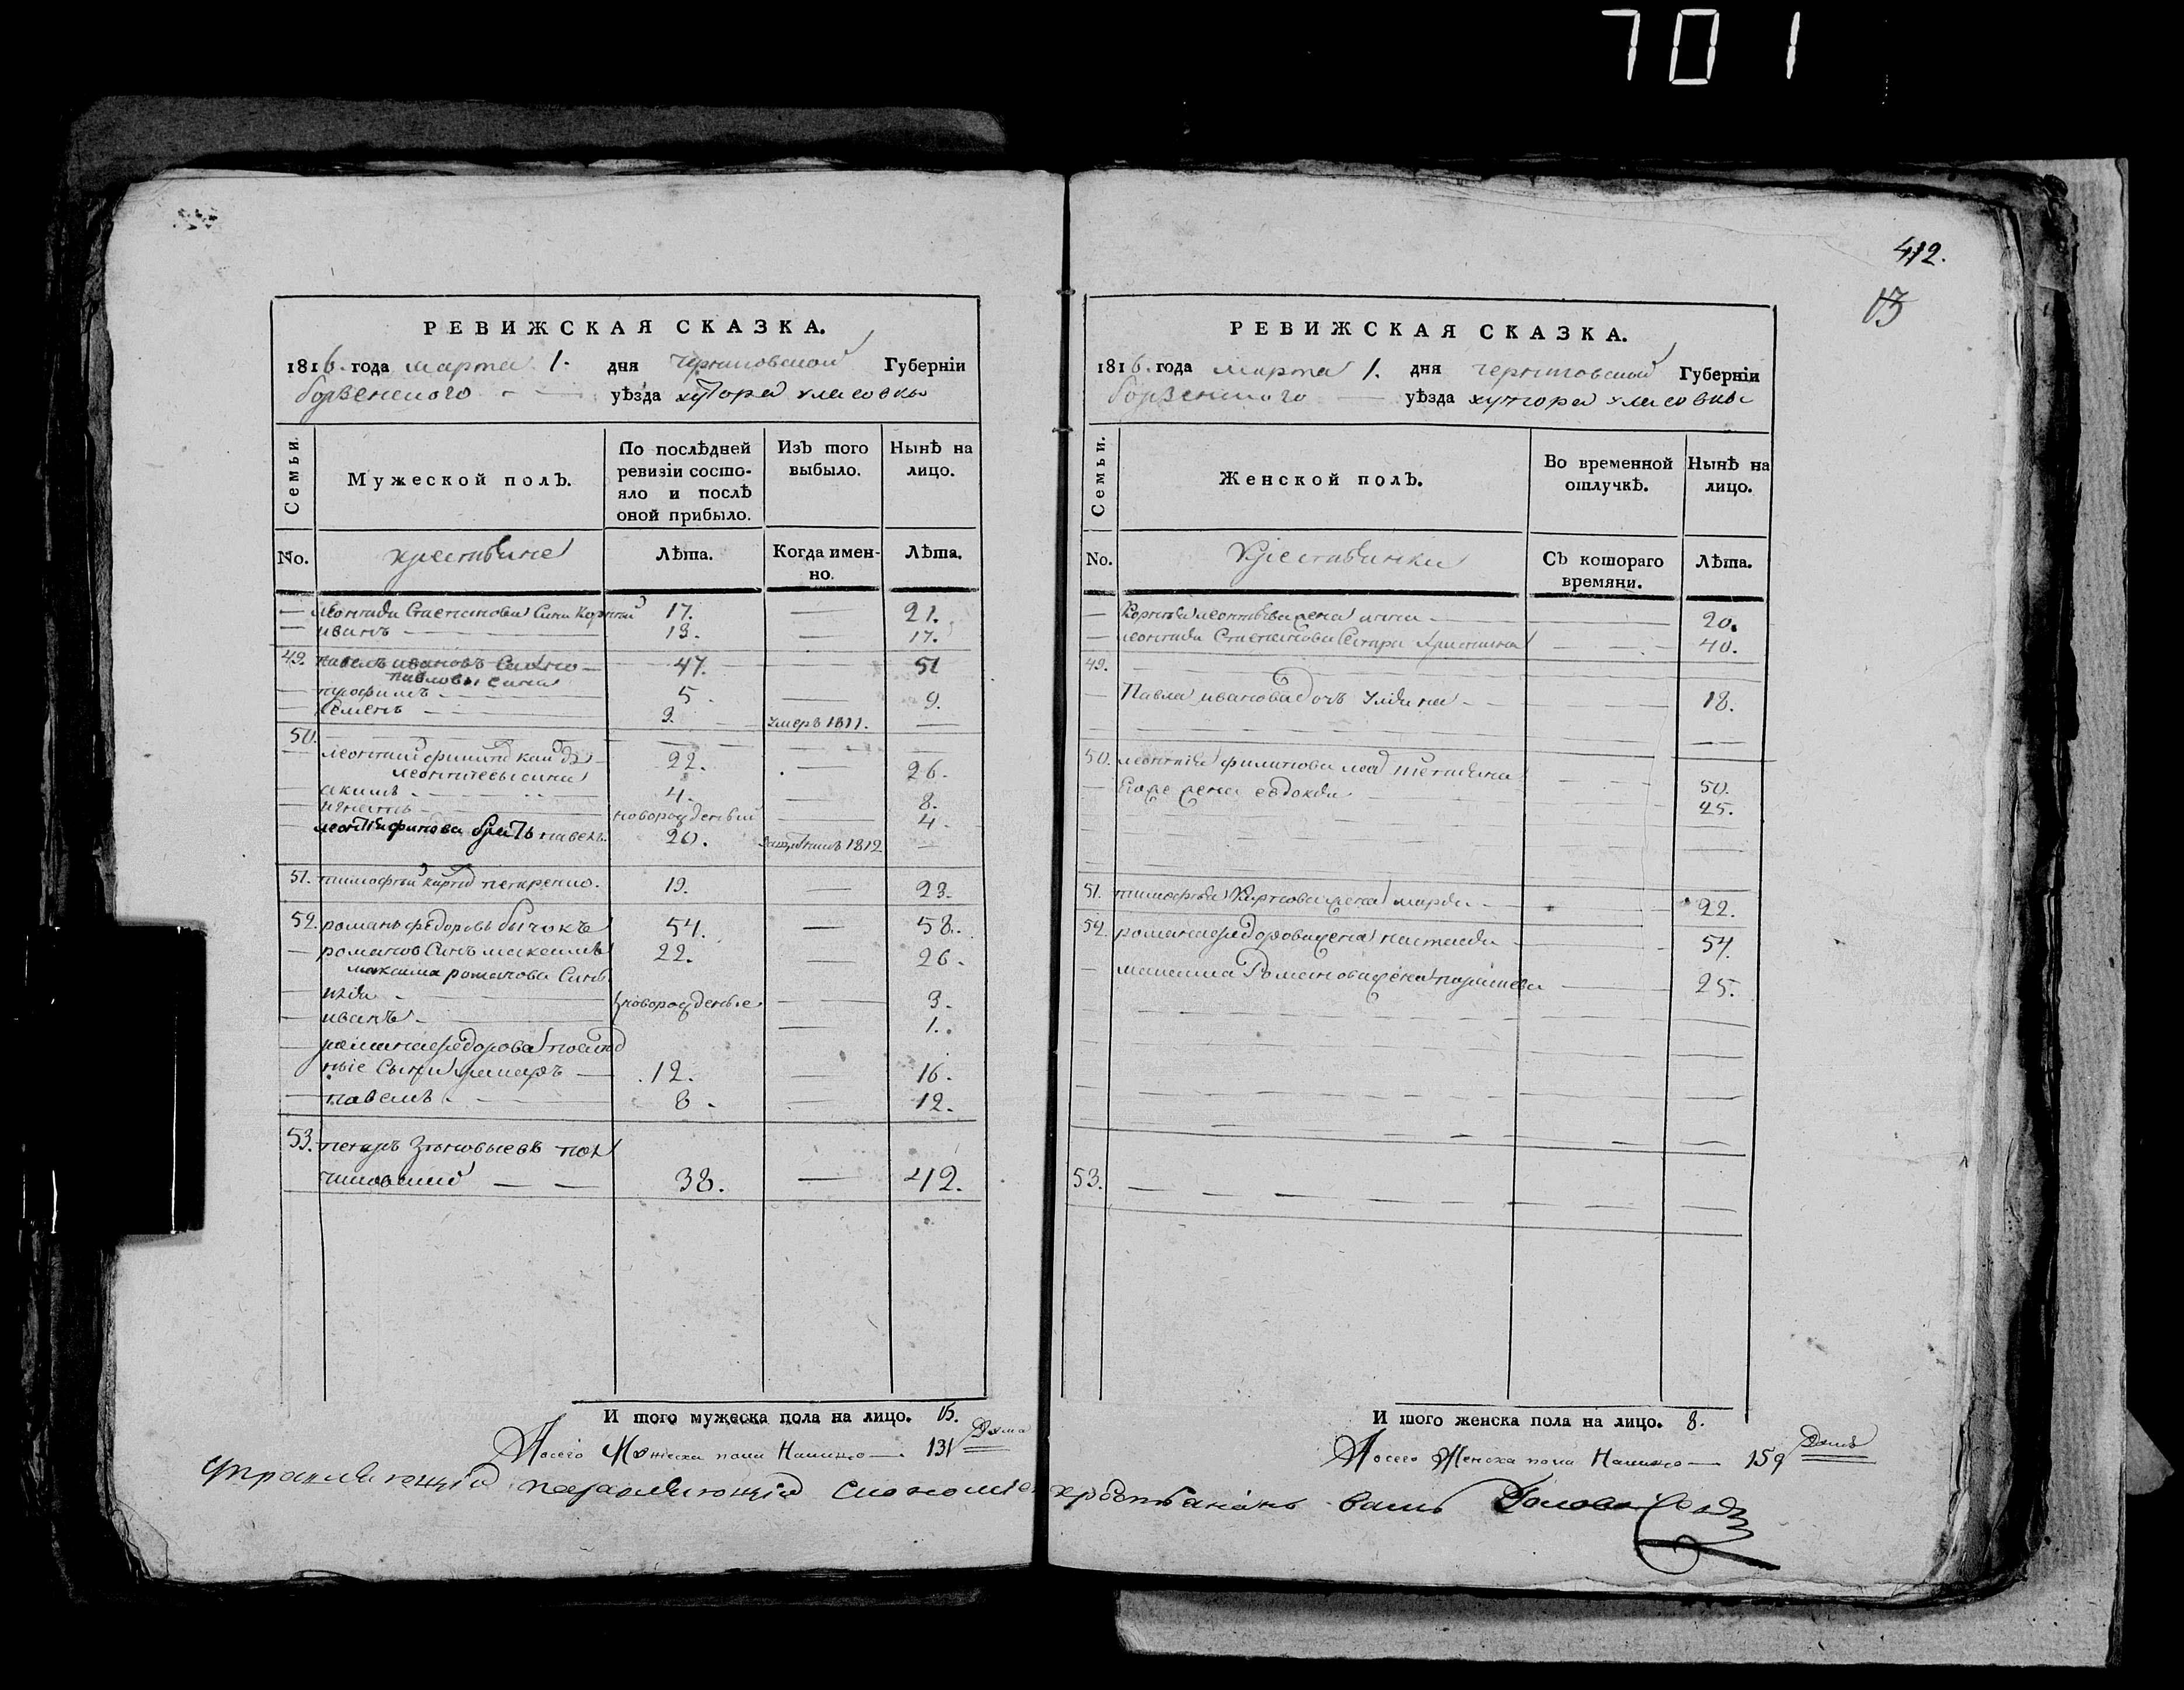 701
412.
13
РЕВИЖСКАЯ СКАЗКА.
1816. года марта 1. дня черниговской Губерніи
борзенского уѣзда хутора уласовки
Семьи.
Мужеской полЪ.
По послѣдней ревизіи состояло и послѣ оной прибыло.
ИзЪ того выбыло.
НынѣЪ на лицо.
No.
крестьяне
Лѣта.
Когда именно.
Лѣта.
Степанова Сини Корней 17. — 21.
— иванъ — 13. — 17.
49. павелъ ивановъ 47. — 51
павловы сини
— трофимъ — 5 — 9.
— семенъ — 9. умеръ 1811. —
50.
— леонтий филипов 22. — 26.
леонтиевы сини
— акимъ — 4. — 8.
— игнатъ — новорожденый 4.
братъ павелъ 20. 1812 —
51. тимофей карпов петренко. 19. — 23.
52. романъ федоровъ бычокъ 54. — 58.
— романов Синъ максимъ 22. — 26.
максима романова Сини
— илия — новорожденые — 3.
— иванъ — 1.
— романа федорова
ние Сыни 12. — 16.
— павелъ — 8. — 12.
53. петръ зѣновьевъ
38. — 42.
И того мужеска пола на лицо. 15.
Всего Мужеска пола Налицо — 131 Душа
РЕВИЖСКАЯ СКАЗКА.
1816. года марта 1. дня черниговской Губерніи
борзенского — уѣзда хутора уласовки
Семьи.
Женской полЪ.
Во временной отлучкѣ.
НынѣЪ на лицо.
No.
Крестьянки
СЪ котораго времяни.
Лѣта.
— Корнея леонтьева жена анна — 20.
— леонтия Степанова Сестра христина 40.
49.
— Павла иванова дочь Улияна — 18.
50. леонтия филипова мать татияна 50.
Его жена евдокия 25.
51. тимофея Карпова жена мария — 22.
52. романа федорова жена настасия 54.
— максима Романова жена параскева 25.
53.
И того женска пола на лицо. 8.
Всего Женска пола Налицо — 159 Душъ
управляющій крестьянинъ